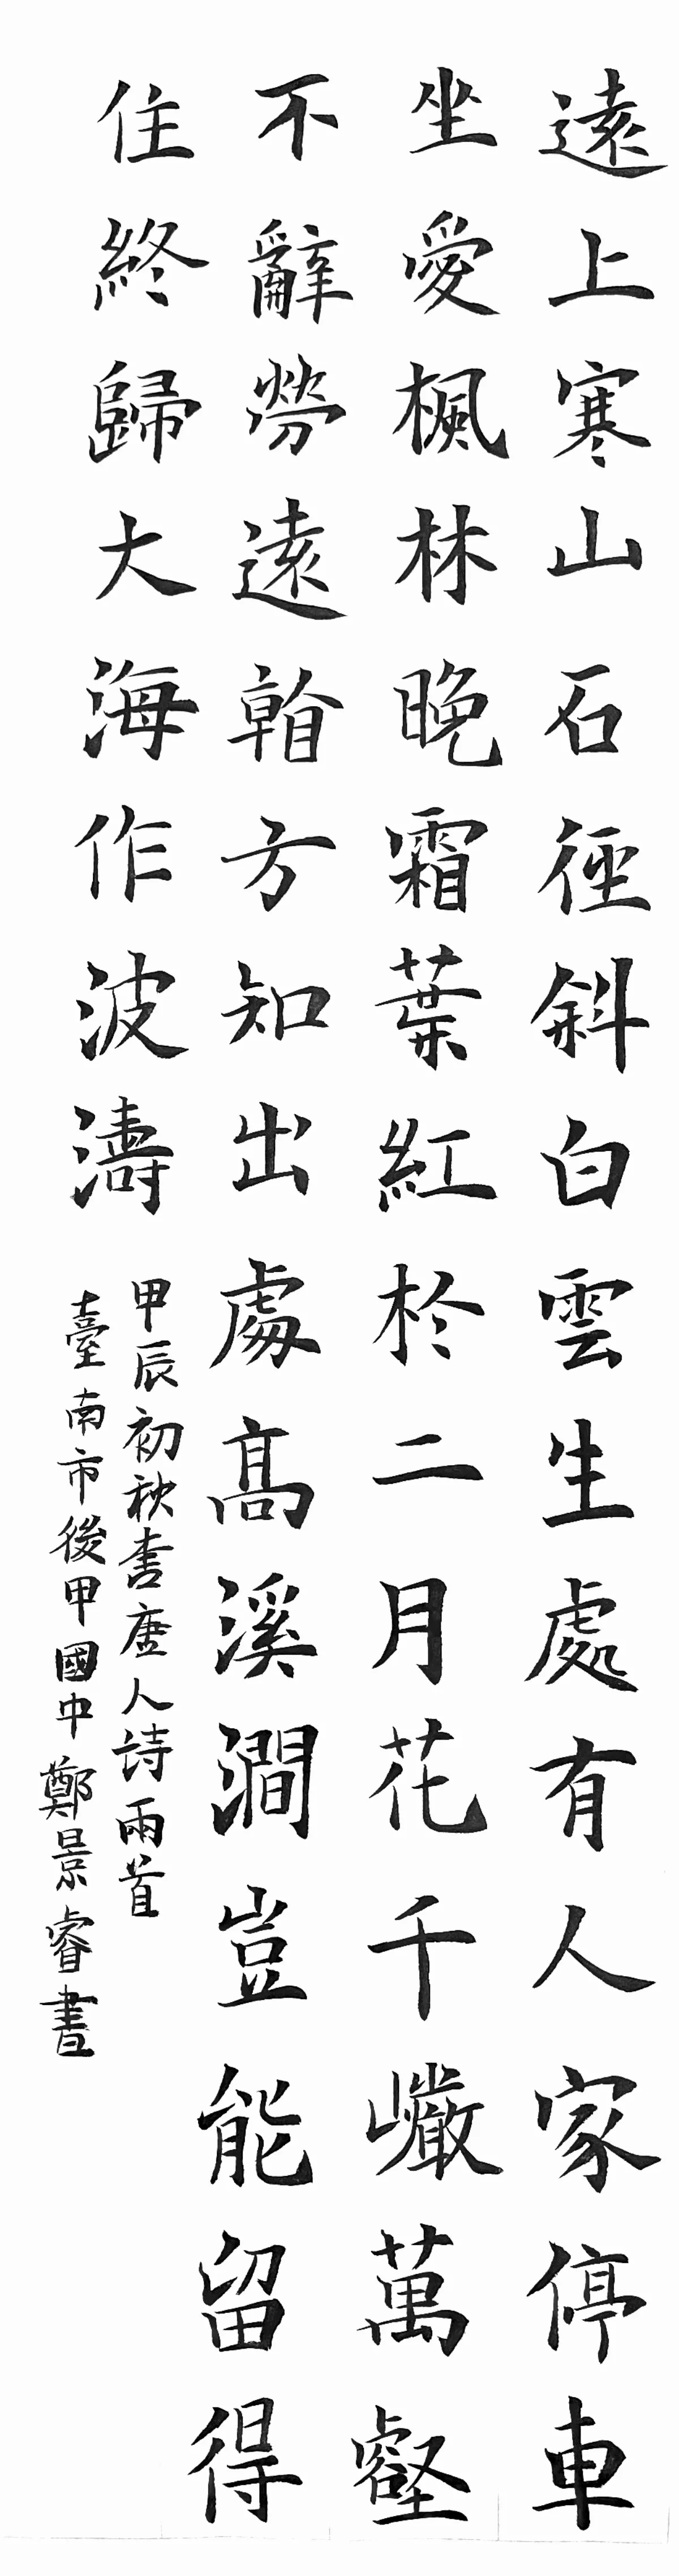 遠上寒山石徑斜白雲生處有人家停車
坐愛楓林晚霜葉紅於二月花千巖萬壑
不辭勞遠看方知出處高溪澗豈能留得
住終歸大海作波濤
甲辰初秋書唐人詩兩首
臺南市後甲國中鄭景睿書